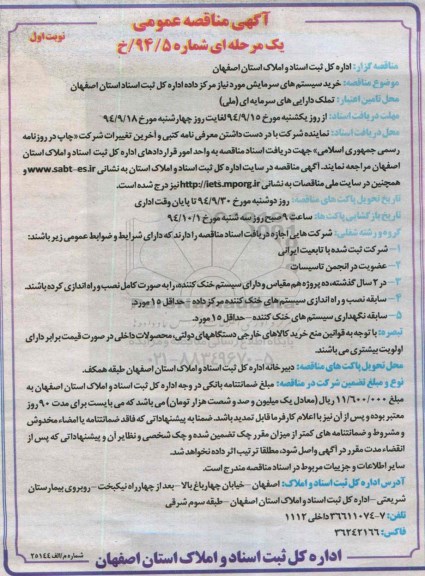 آگهی مناقصه عمومی
نوبت اول
یک مرحله ای شماره ۹۴/۵/خ
مناقصه گزار: اداره کل ثبت اسناد و املاک استان اصفهان
موضوع مناقصه: خرید سیستم های سرمایش مورد نیاز مرکز داده اداره کل ثبت اسناد استان اصفهان
محل تامین اعتبار: تملک دارایی های سرمایه ای (ملی)
مهلت دریافت اسناد: از روز یکشنبه مورخ ۹۴/۹/۱۵ لغایت روز چهارشنبه مورخ ۹۴/۹/۱۸
محل دریافت اسناد: نماینده شرکت با در دست داشتن معرفی نامه کتبی و آخرین تغییرات شرکت «چاپ در روزنامه
رسمی جمهوری اسلامی» جهت دریافت اسناد مناقصه به واحد امور قراردادهای اداره کل ثبت اسناد و املاک استان
اصفهان مراجعه نمایند. آگهی مناقصه در سایت اداره کل ثبت اسناد و املاک استان اصفهان به نشانی www.sabt-es.ir و
همچنین در سایت ملی مناقصات به نشانی http://iets.mporg.ir نیز درج شده است.
تاریخ تحویل پاکت های مناقصه: روز دوشنبه مورخ ۹۴/۹/۳۰ تا پایان وقت اداری
تاریخ بازگشایی پاکت ها: ساعت ۹ صبح روز سه شنبه مورخ ۹۴/۱۰/۱
گروه و رشته شغلی: شرکت هایی اجازه دریافت اسناد مناقصه را دارند که دارای شرایط و ضوابط عمومی زیر باشند:
۱- شرکت ثبت شده با تابعیت ایرانی
۲- عضویت در انجمن تاسیسات
۳- در ۲ سال گذشته، ده پروژه هم مقیاس و دارای سیستم خنک کننده، را به صورت کامل نصب و راه اندازی کرده باشند.
۴- سابقه نصب و راه اندازی سیستم های خنک کننده مرکز داده - حداقل ۱۵ مورد.
۵- سابقه نگهداری سیستم های خنک کننده - حداقل ۱۵ مورد.
تبصره: با توجه به قوانین منع خرید کالاهای خارجی دستگاههای دولتی، محصولات داخلی در صورت قیمت برابر دارای
اولویت بیشتری می باشند.
محل تحویل پاکت های مناقصه: دبیرخانه اداره کل ثبت اسناد و املاک استان اصفهان طبقه همکف.
نوع و مبلغ تضمین شرکت در مناقصه: مبلغ ضمانتنامه بانکی در وجه اداره کل ثبت اسناد و املاک استان اصفهان به
مبلغ ۱۱/۶۰۰/۰۰۰ ریال (معادل یک میلیون و صد و شصت هزار تومان) می باشد که می بایست برای مدت ۹۰ روز
معتبر بوده و پس از آن نیز با اعلام کارفرما قابل تمدید باشد. ضمنا به پیشنهاداتی که فاقد ضمانتنامه یا امضاء مخدوش
و مشروط و ضمانتنامه های کمتر از میزان مقرر چک تضمین شده و چک شخصی و نظایر آن و پیشنهاداتی که پس از
انقضاء مدت مقرر در آگهی واصل شود، مطلقا ترتیب اثر داده نخواهد شد.
سایر اطلاعات و جزییات مربوط در اسناد مناقصه مندرج است.
آدرس اداره کل ثبت اسناد و املاک: اصفهان - خیابان چهارباغ بالا - بعد از چهارراه نیکبخت - روبروی بیمارستان
شریعتی - اداره کل ثبت اسناد و املاک استان اصفهان - طبقه سوم شرقی
تلفن: ۷-۳۶۶۱۱۰۷۴ داخلی ۱۱۱۲
فاکس: ۳۶۲۴۲۱۶۶
شماره م/الف ۲۵۱۴۴
اداره کل ثبت اسناد و املاک استان اصفهان
۰۲۱-۸۸۳۴۹۶۷۰-۵